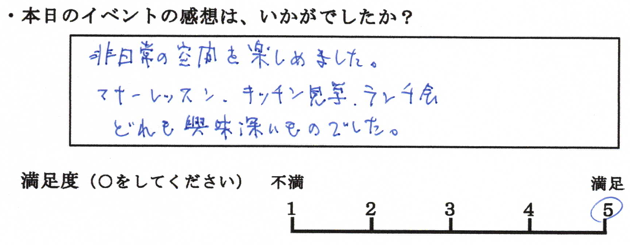 ・本日のイベントの感想は、いかがでしたか？
非日常の空間を楽しめました。
マナーレッスン、キッチン見学、ランチ会
どれも興味深いものでした。
満足度（○をしてください） 不満 満足
1 2 3 4 5